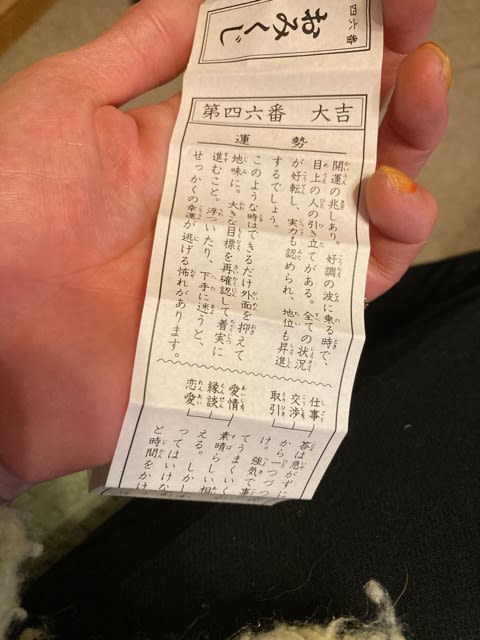 四六番
おみくじ
第四六番　大吉
運勢
開運の兆しあり。好調の波に乗る時で、
目上の人の引き立てがある。全ての状況
が好転し、実力も認められ、地位も昇進
するでしょう。
このような時はできるだけ外面を抑えて
地味に。大きな目標を再確認して着実に
進むこと。浮ついたり、下手に迷うと、
せっかくの幸運が逃げる怖れがあります。
仕事
交渉
取引
答は急がずに
から一つづつ
け。強気で事
てうまくいく
愛情
縁談
恋愛
素晴らしい相
える。しかし
ってはいけな
と時間をかけ